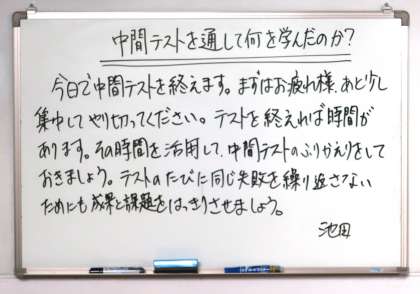 中間テストを通して何を学んだのか?
今日で中間テストを終えます。まずはお疲れ様、あと少し
集中してやり切ってください。テストを終えれば時間が
あります。その時間を活用して、中間テストのふりかえりをして
おきましょう。テストのたびに同じ失敗を繰り返さない
ためにも成果と課題をはっきりさせましょう。
池田